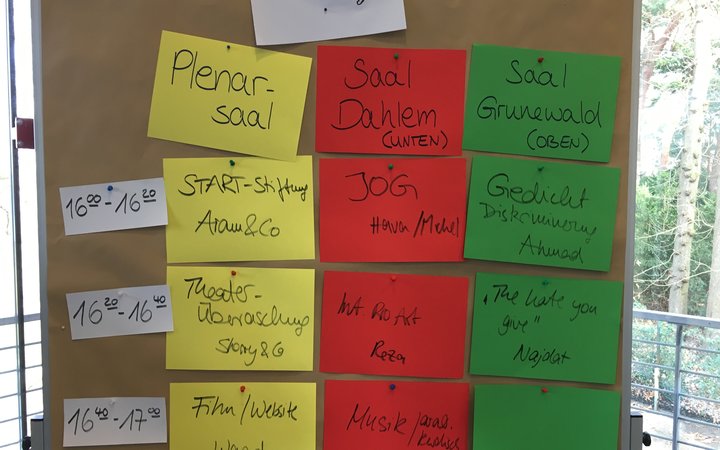 Plenar-
saal
Saal
Dahlem
(UNTEN)
Saal
Grunewald
(OBEN)
16⁰⁰-16²⁰
START-Stiftung
Aram&Co
JOG
Gedicht
Diskriminierung
Ahmad
16²⁰-16⁴⁰
Theater-
Überraschung
Int. Pro Art
Reza
"The hate you
give"
Najdat
16⁴⁰-17⁰⁰
Film/Website
Musik/